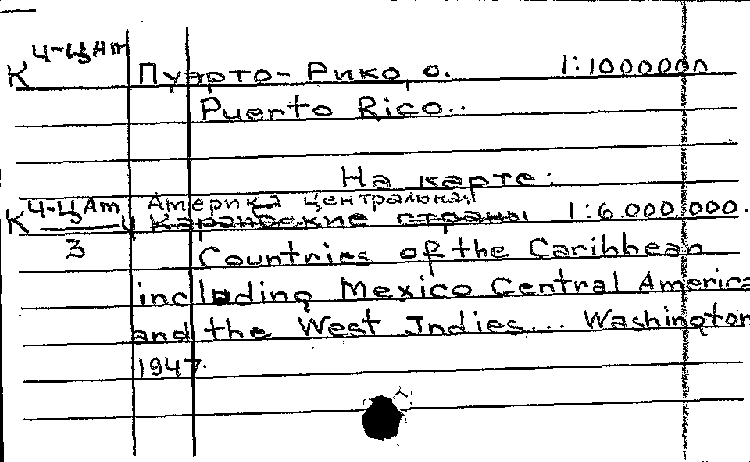 К 4-ЦАм Пуэрто-Рико, о. 1:1000000
Puerto Rico..
На карте:
Америка центральная
К 4-ЦАм 4 Караибские страны 1:6.000.000.
3
Countries of the Caribbean
including Mexico Central America
and the West Indies... Washington
1947.